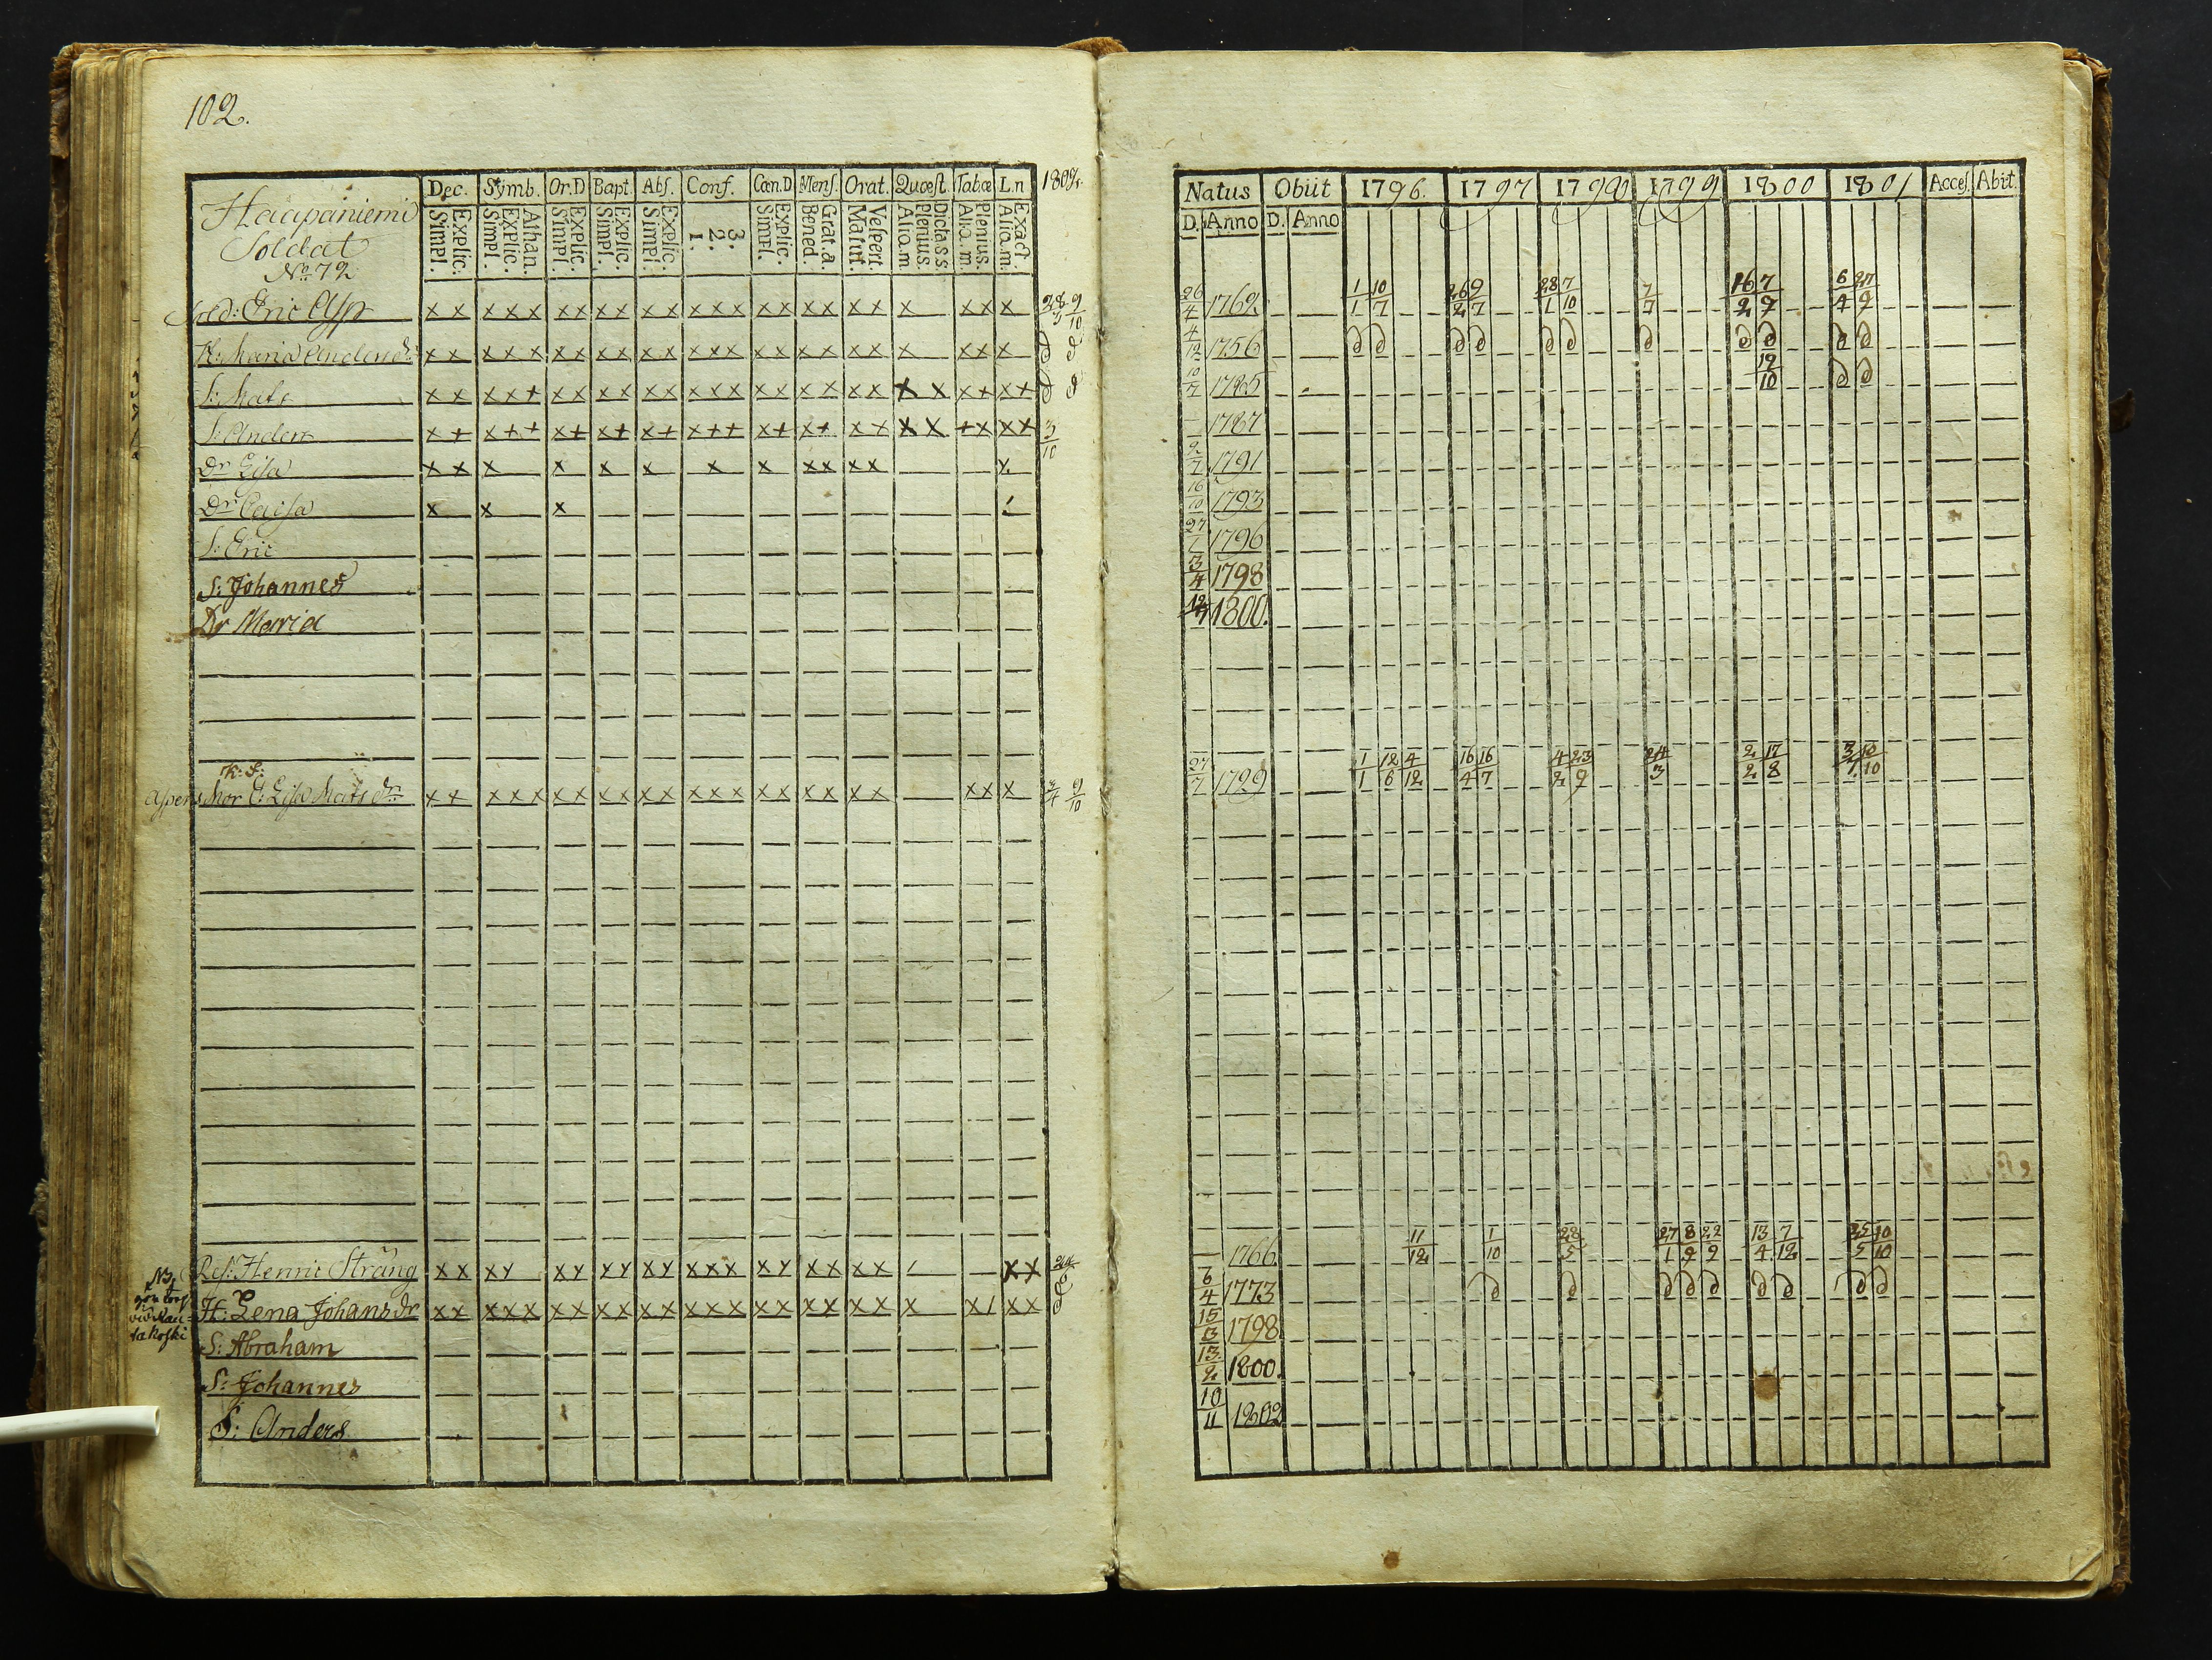 102.
Dec. Symb. Or.D Bapt. Abs. Conf. Cœn.D Mens. Orat. Quæst. Tabæ L.n 1802.
Haapaniemi
Soldat
No 72
Explic. Simpl. Athan. Explic. Simpl. Explic. Simpl. Explic. Simpl. Explic. Simpl. 3. 2. 1. Explic. Simpl. Grat.a. Bened. Vespert. Matut. Dicta s s. Plenius. Aliq.m. Plenius. Aliq.m. Exact. Aliq.m.
Sold: Eric Asp x x x x x x x x x x x x x x x x x x x x x x x x x 9/10
H: Maria Anders dr x x x x x x x x x x x x x x x x x x x x x x x x d d
S: Mats x x x x x x x x x x x x x x x x x x x x x x x x x x d d
S: Anders x x x x x x x x x x x x x x x x x x x x x x x x x x 3/10
Dr Lisa x x x x x x x x x x x x x
Dr Caisa x x x
S: Eric
S: Johannes
Dr Maria
K: F:
Aspens Mor E: Lisa Mats dr x x x x x x x x x x x x x x x x x x x x x x x 9/10
Ref: Henric Sträng x x x x x x x x x x x x x x x x x x x x x
NB.
H: Lena Johans dr x x x x x x x x x x x x x x x x x x x x x x x x
S: Abraham
S: Johannes
S: Anders
Natus Obiit 1796. 1797 1798 1799 1800 1801 Acces. Abiit.
D. Anno D. Anno
26/4 1762 1/1 10/7 26/2 9/7 28/1 7/10 7/7 16/2 7/9 6/4 27/9
4/12 1756 d d d d d d d d d d d
10/7 1785 12/10 d d
1787
9/7 1791
16/10 1793
1796
3/4 1798
1800.
27/7 1729 1/1 12/6 4/12 16/4 16/7 4/2 23/9 24/3 2/2 17/8 3/1 10/10
1766 11/12 1/10 28/5 27/1 8/9 22/9 13/4 7/12 25/5 10/10
6/4 1773 d d d d d d d d d
15/13 1798
13/2 1800.
10/11 1802